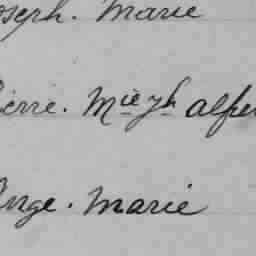 oseph. Marie
ierre. Mie Jh alfre
Ange. Marie